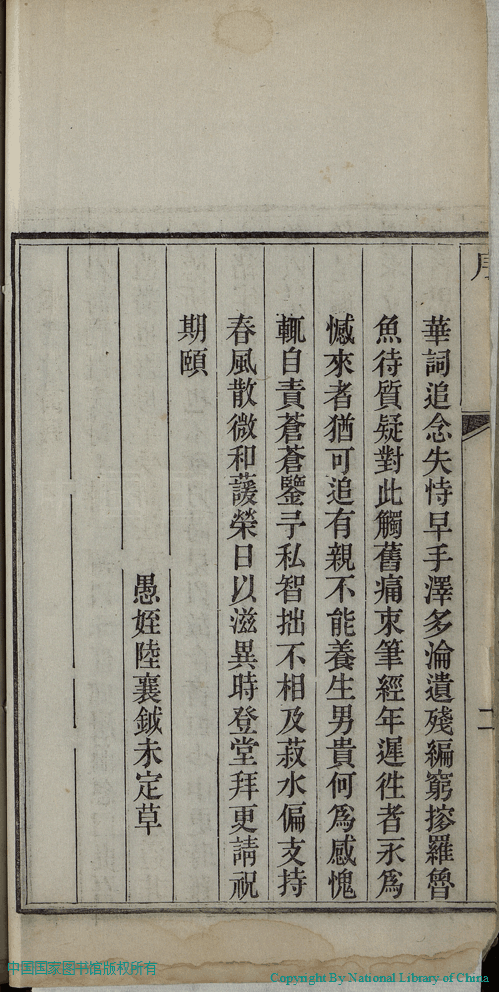 華詞追念失恃早手澤多淪遺殘編窮搜羅魯
魚待質疑對此觸舊痛束筆經年遲徃者永爲
憾來者猶可追有親不能養生男貴何爲感愧
輒自責蒼蒼鑒予私智拙不相及菽水偏支持
春風散微和蘐榮日以滋異時登堂拜更請祝
期頤
愚姪陸襄鉞未定草
二
中国国家图书馆版权所有
Copyright By National Library of China